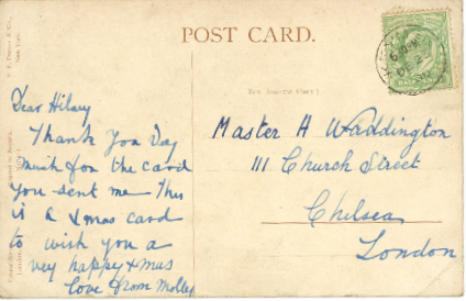 POST CARD.
Dear Hilary
Thank you vay
much for the card
you sent me This
is a Xmas card
to wish you a
vey happy xmas
love from Molly
Master H Waddington
111 Church Street
Chelsea
London